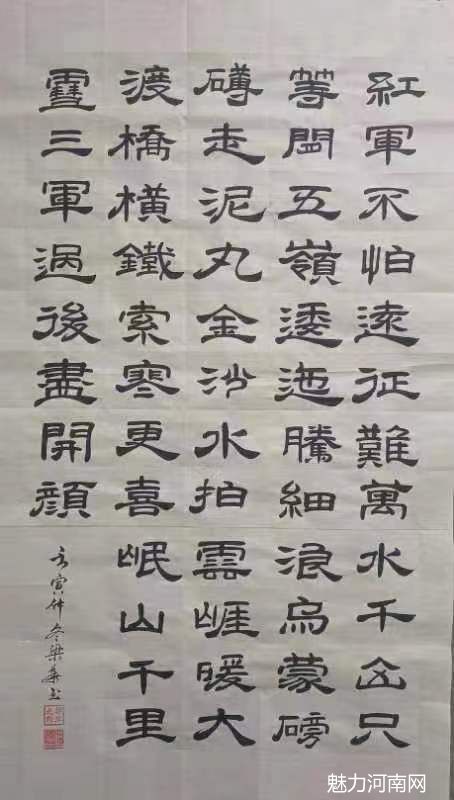 紅軍不怕遠征難萬水千山只
等閒五嶺逶迤騰細浪烏蒙磅
礴走泥丸金沙水拍雲崕暖大
渡橋橫鐵索寒更喜岷山千里
雪三軍過後盡開顏
壬寅仲冬梁華书
魅力河南网